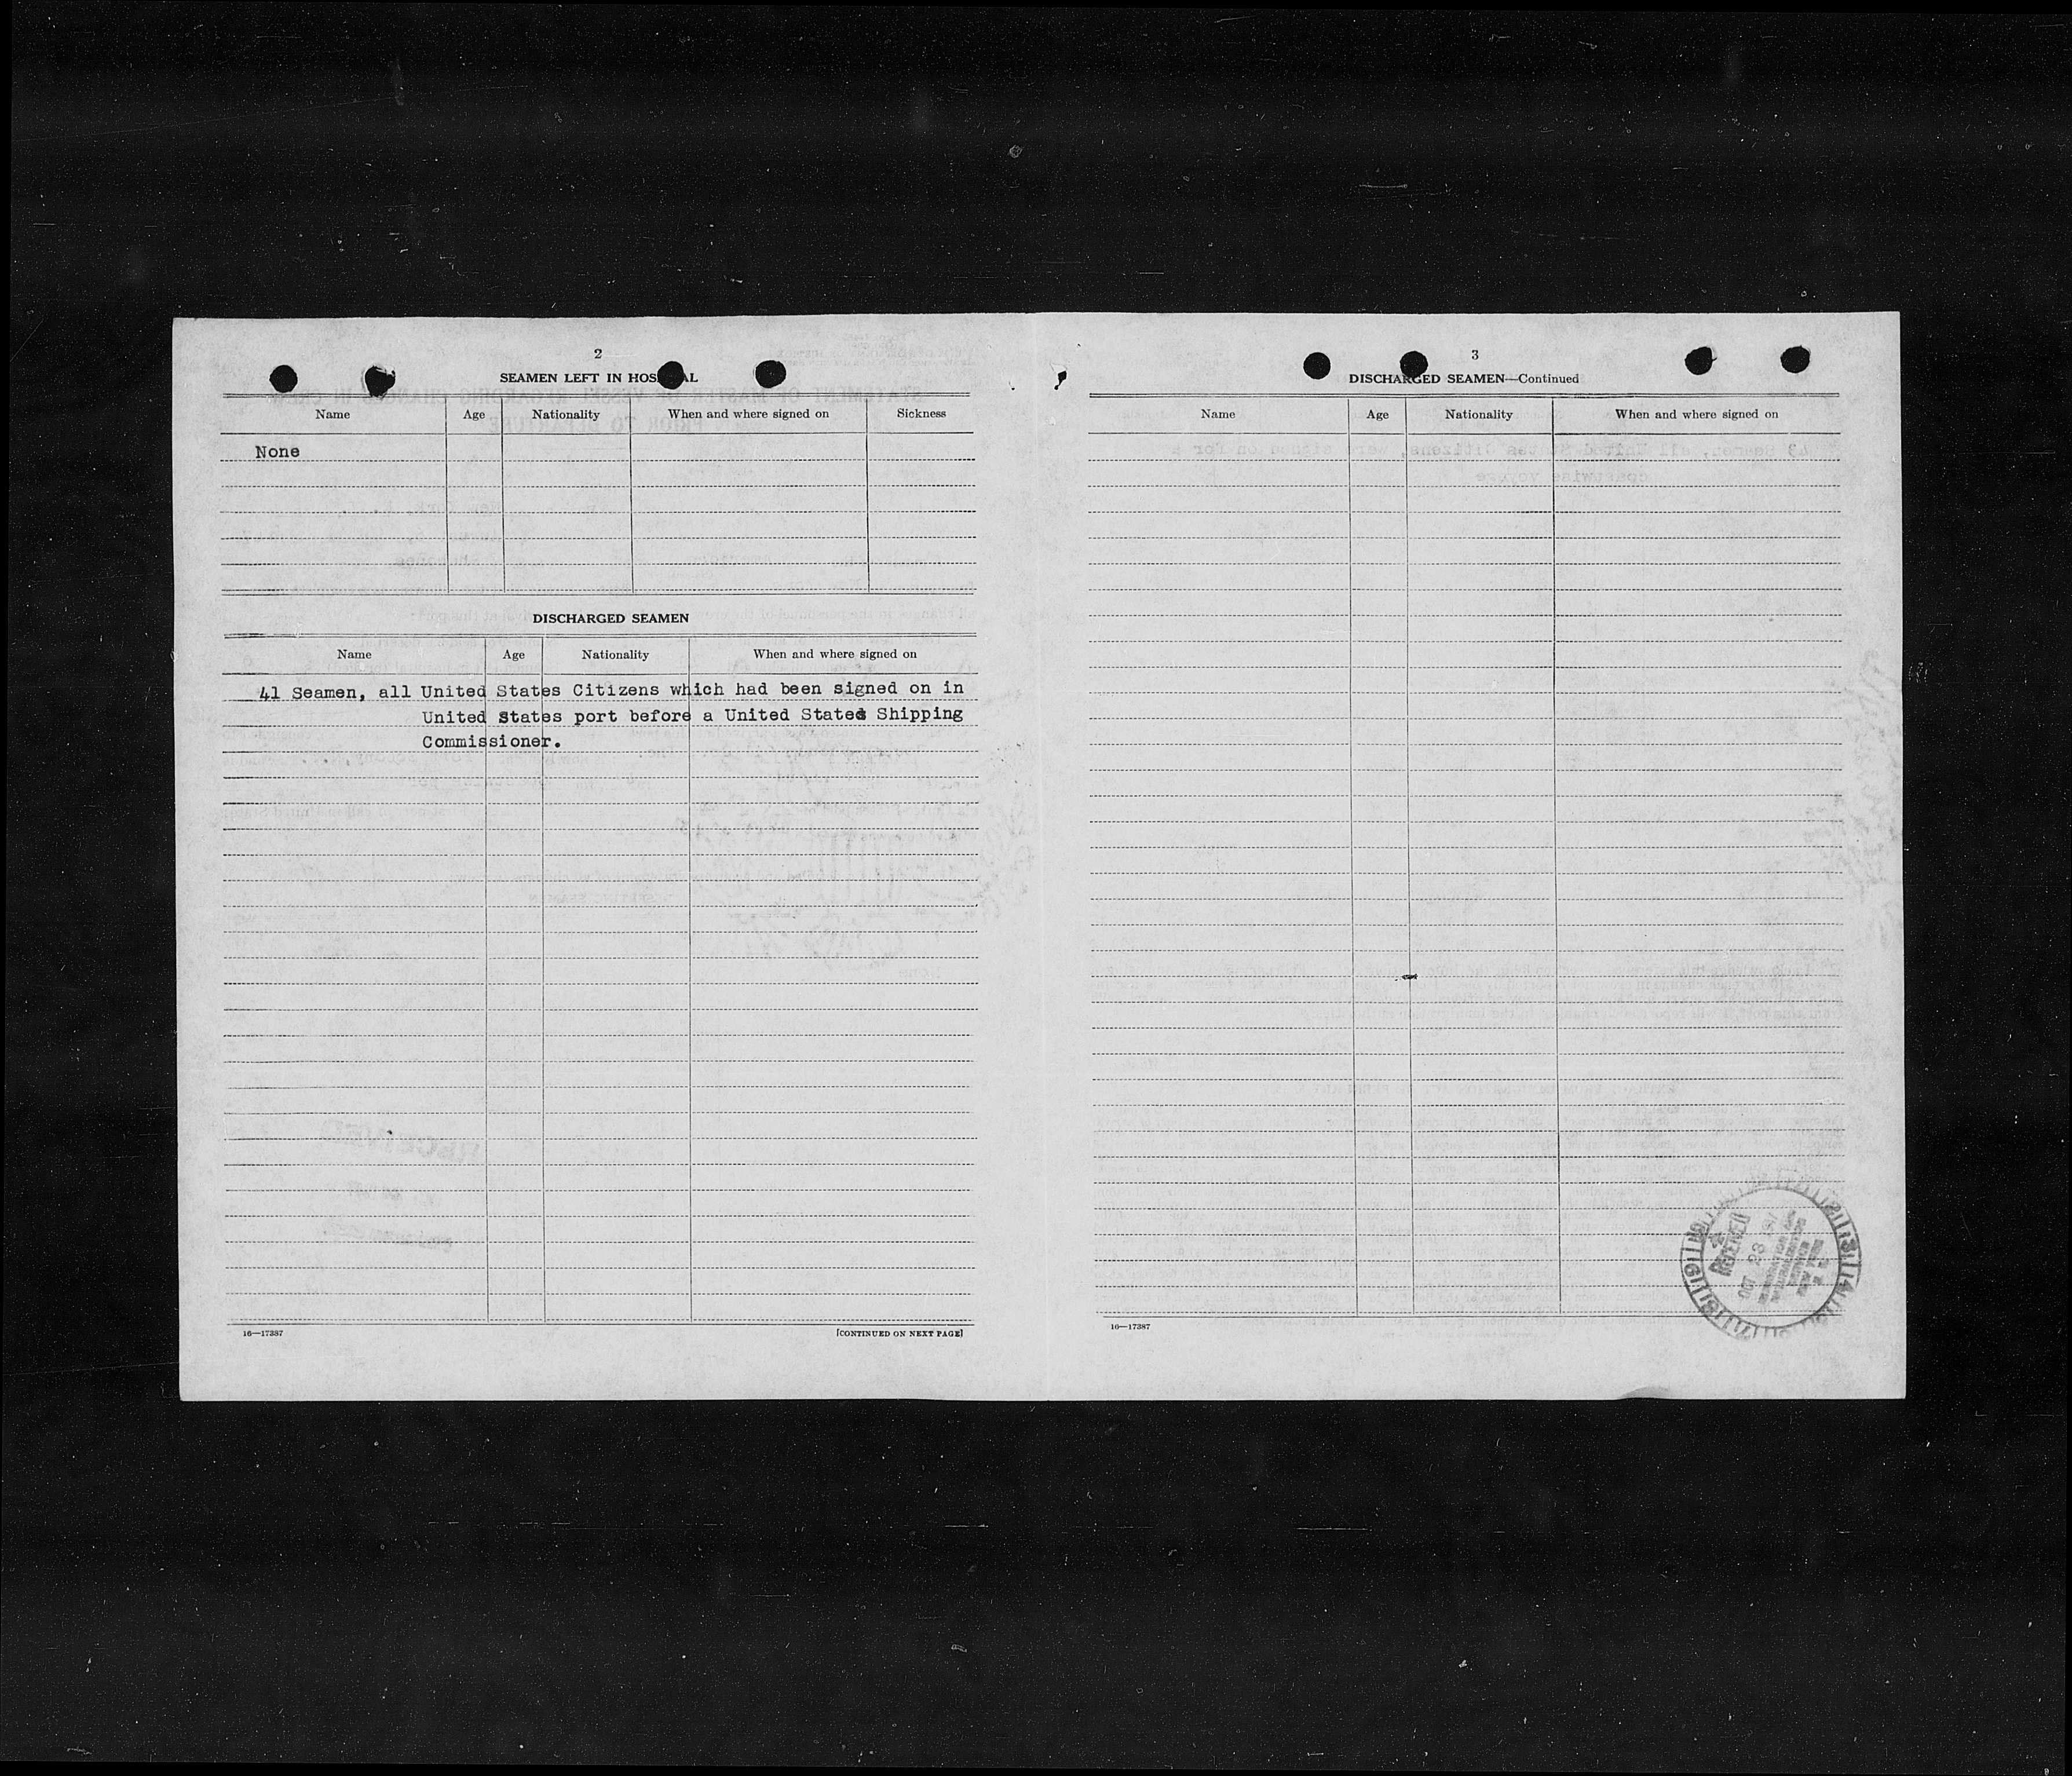 2
SEAMEN LEFT IN HOS AL
Name Age Nationality When and where signed on Sickness
None
DISCHARGED SEAMEN
Name Age Nationality When and where signed on
41 Seamen, all United States Citizens which had been signed on in
United States port before a United States Shipping
Commissioner.
16—17387 [CONTINUED ON NEXT PAGE]
3
DISCHARGED SEAMEN—Continued
Name Age Nationality When and where signed on
16—17387
RECEIVED